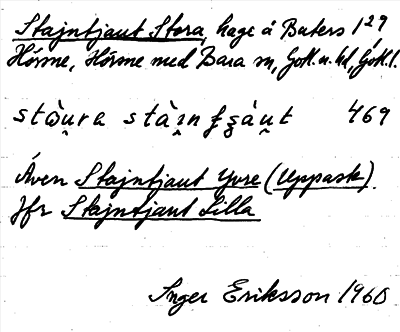 Stajntjaut Stora, hage å Buters 1²⁹
Hörsne, Hörsne med Bara sn, Gotl. n. hd, Gotl. l.
469
Även Stajntjaut Yvre (Uppask).
Jfr Stajntjaut Lilla
Inger Eriksson 1960